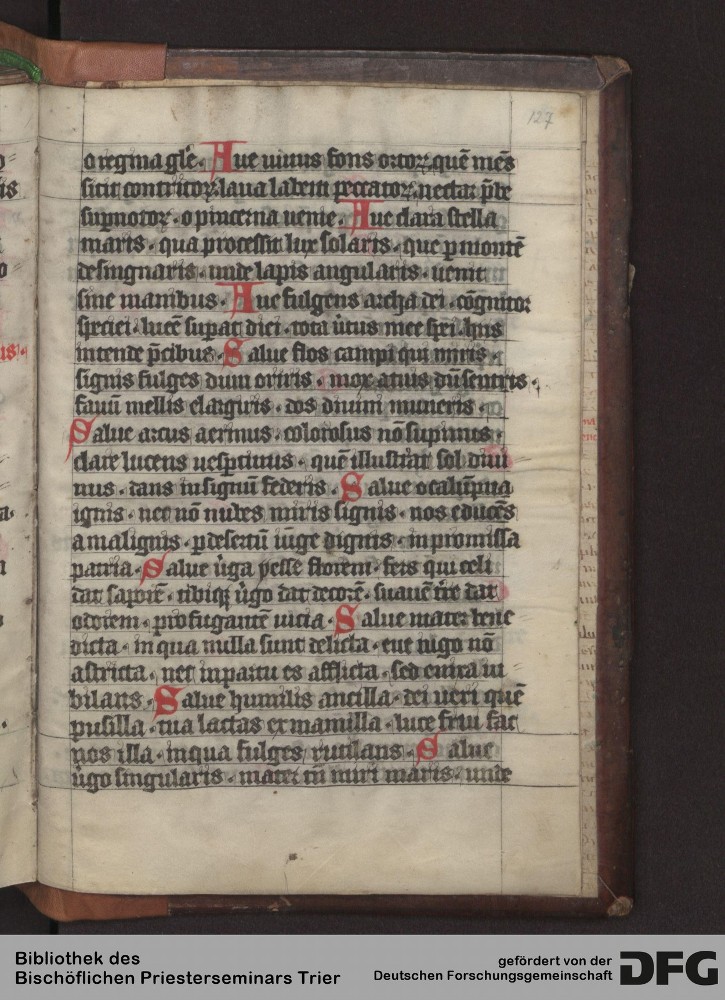 127
o regina gl̄e. Aue uiuus fons ortoꝝ. quē mēs
sicut contritoꝝ laua labem peccatoꝝ. nectar p̄de
supnotoꝝ. o pincerna uenie. Aue clara stella
maris. qua processit lux solaris. que pmontē
designaris. unde lapis angularis. uenit
sine manibus. Aue fulgens archa dei. cōgnitor
speciei. lucē supat diei. tota ūtus mee spei. hus
intende p̄cibus. Salue flos campi qui miris.
signis fulges dum oriris. mox
fauū mellis elargiris. dos diuini muneris.
Salue arcus aermus. colorosus nō supinus.
clare lucens uesptinus. quē illustrat sol diui
nus. dans insignū federis. Salue
ignis. nec nō nubes miris signis. nos educēs
amalignis. pdesertū iūge dignis. in promissa
patria. Salue ūga yesse florem. fers qui celi
dat saporē. tibiqꝫ ūgo dat decorē. suauē dat
odorem. profugantē uicia. Salue mater bene
dicta. in qua nulla sunt delicta. eue uigo nō
astricta. nec inpartu es afflicta. sed enixa iu
bilans. Salue humilis ancilla. dei ueri quē
pusilla. tua lactas ex mamilla. luce frui fac
nos illa. inqua fulges rutilans. Salue
ūgo singularis. mater miri maris. unde
Bibliothek des
Bischöflichen Priesterseminars Trier
gefördert von der
Deutschen Forschungsgemeinschaft
DFG